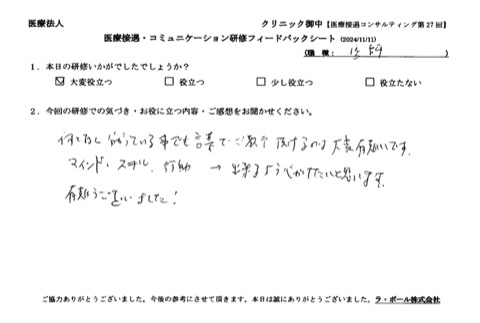 医療法人 クリニック御中【医療接遇コンサルティング第27回】
医療接遇・コミュニケーション研修フィードバックシート (2024/11/11)
(職種: 医師)
1.本日の研修いかがでしたでしょうか?
☑ 大変役立つ □ 役立つ □ 少し役立つ □ 役立たない
2.今回の研修での気づき・お役に立つ内容・ご感想をお聞かせください。
何となし分かっている事でも言葉でご教示頂けるのは大変有難いです。
マインド、スキル、行動 → 出来るよう心がけたいと思います。
有難うございました!
ご協力ありがとうございました。今後の参考にさせて頂きます。本日は誠にありがとうございました。ラ・ポール株式会社